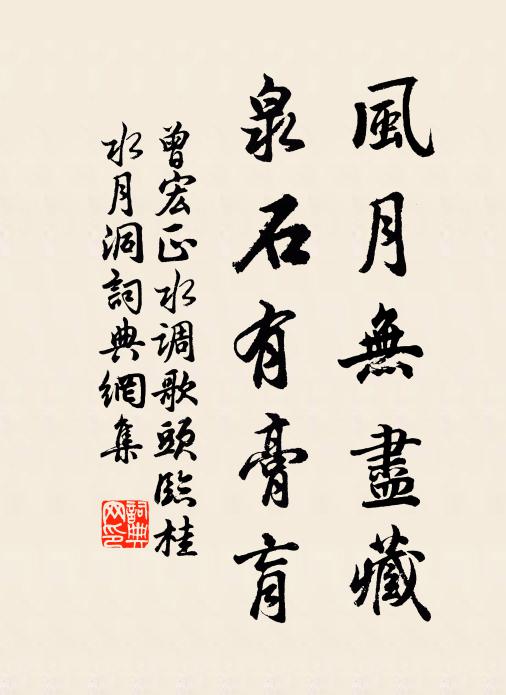 風月無盡藏
泉石有膏肓
曾宏正水调歌頭臨桂
水月洞詞典網集
詞典
网印